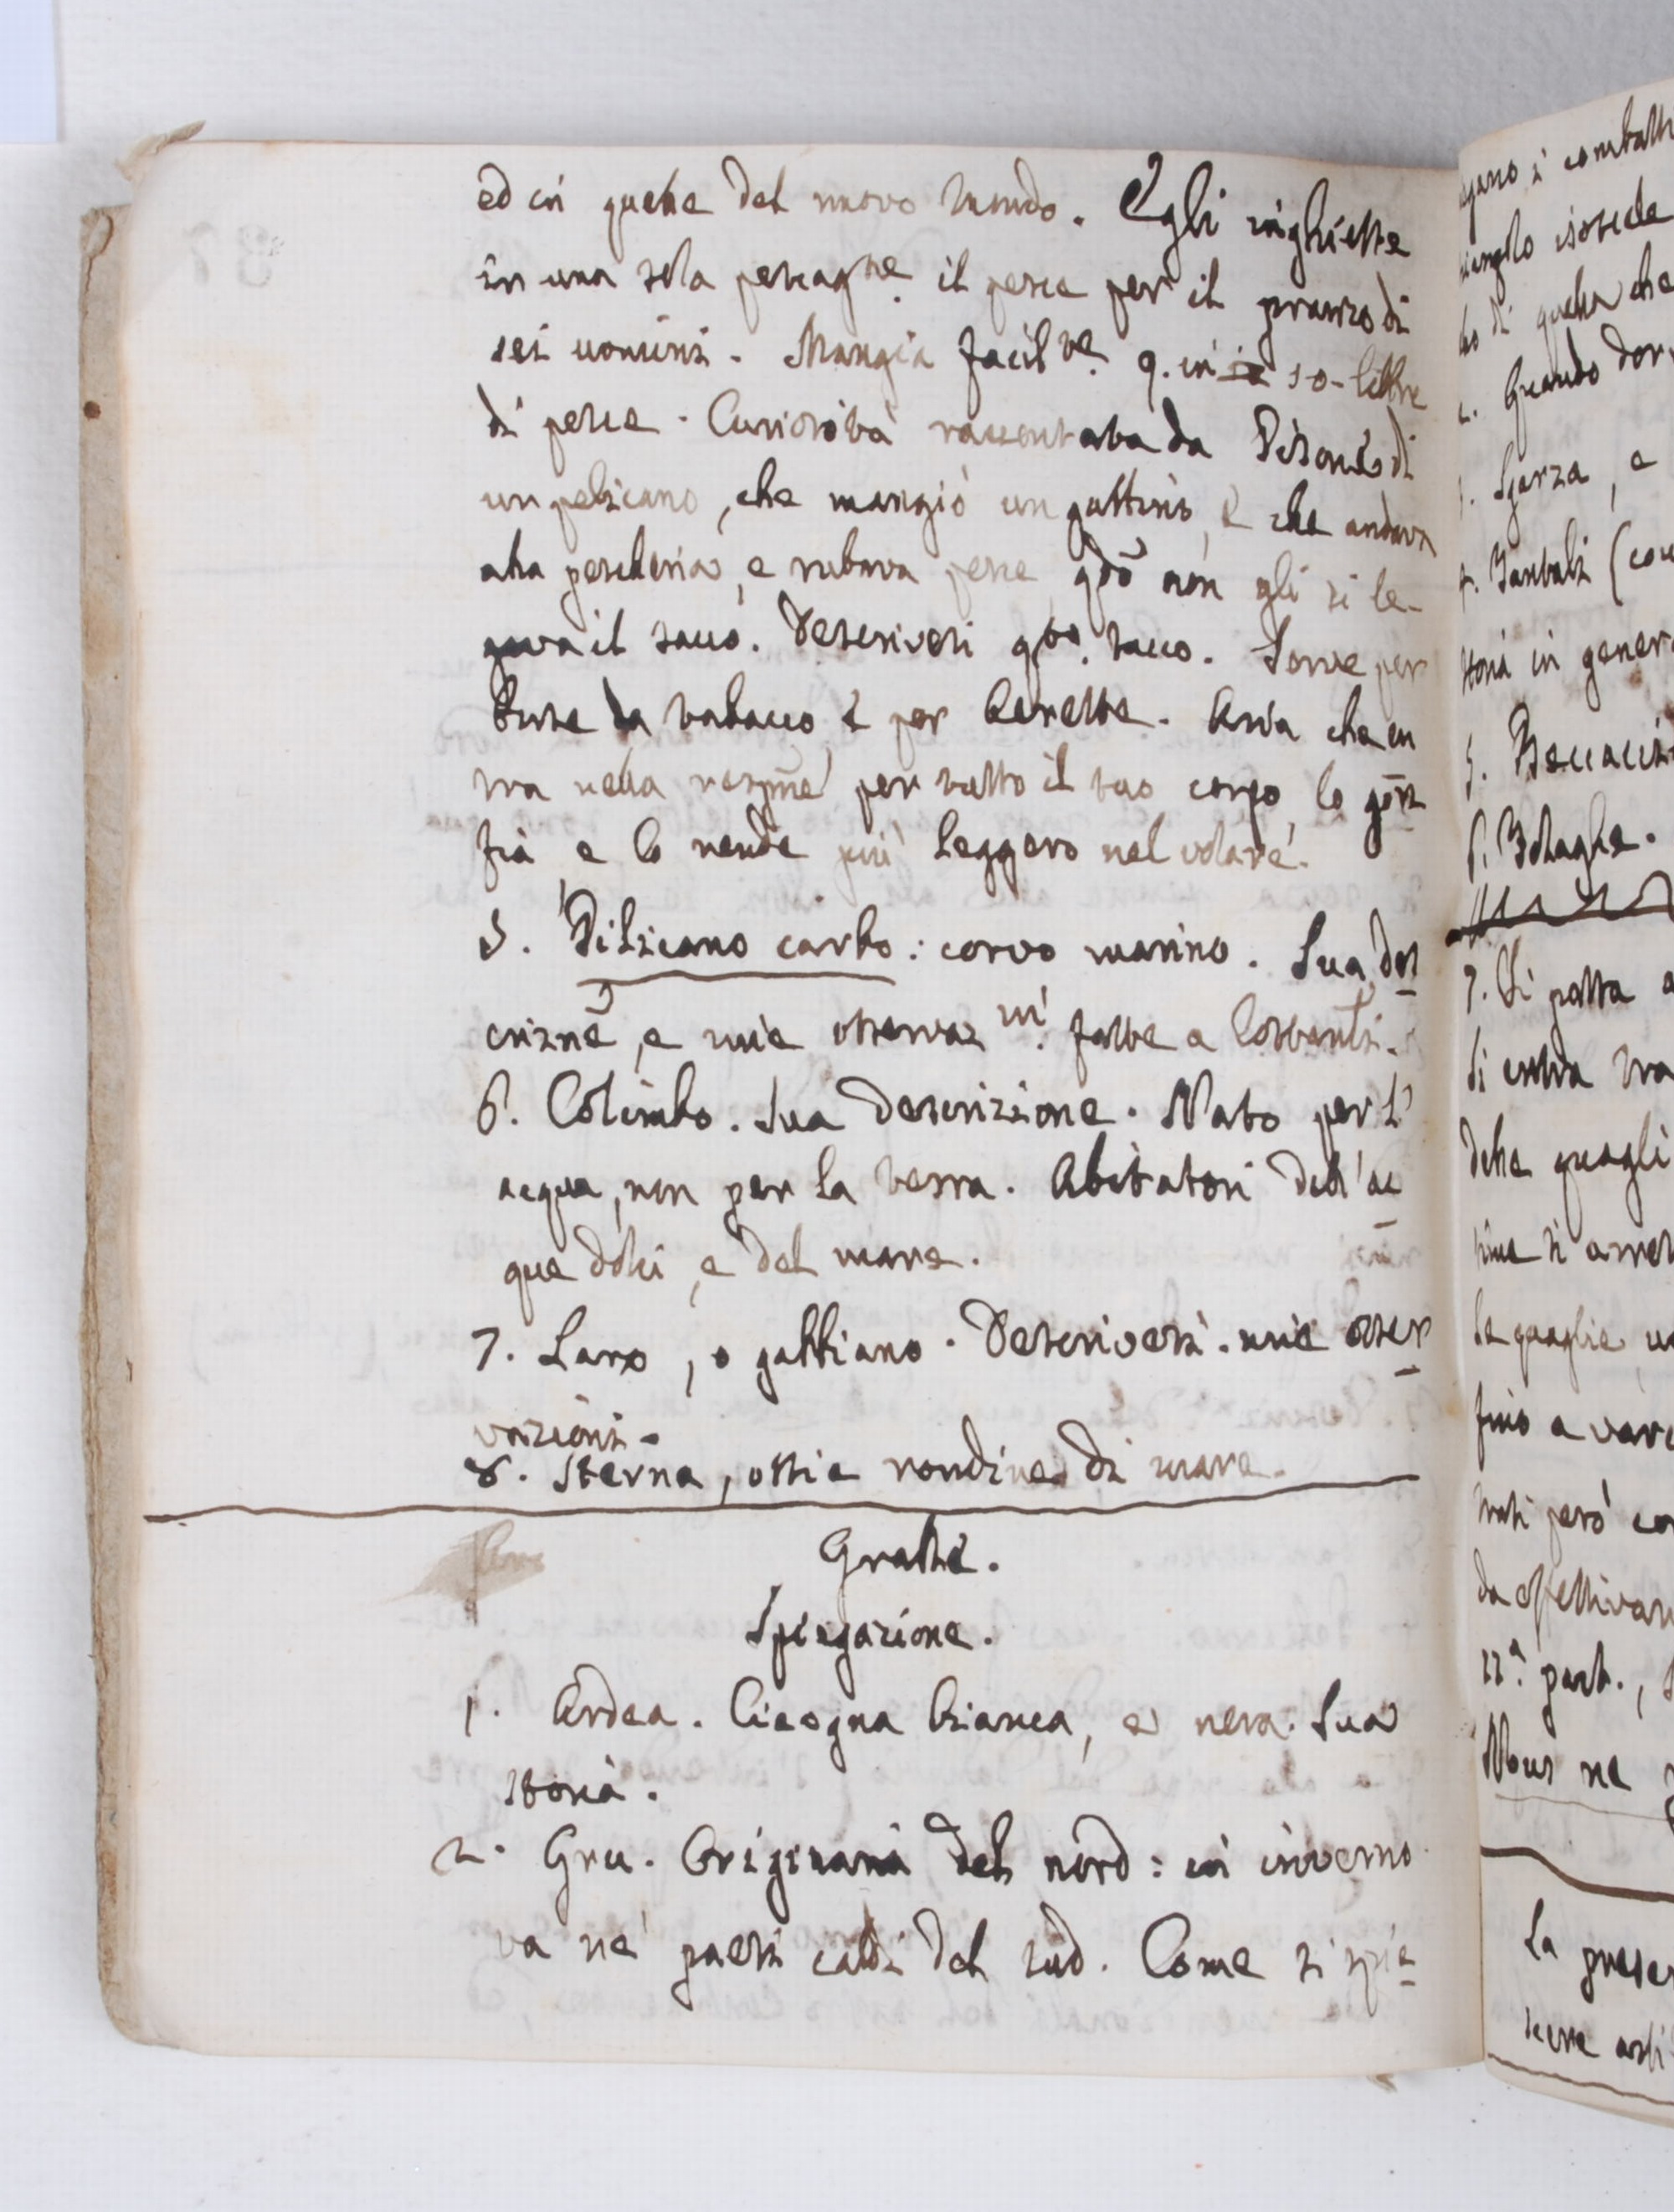 ed in quelle del nuovo mondo. Egli inghiotte
in una sola pescagne. il pesce per il pranzo di
sei uomini. Mangia facil.ve q. in 10 libbre
di pesce. Curiosità raccontata da Pisone di
un pelicano, che mangiò un gattino, e che andava
alla pescheria, e rubava pesce qdo non gli si le-
gava il sacco. Descrivesi qto. sacco. Serve per
burse da tabacco e per berette. Aria che en
tra nella respne per tutto il suo corpo, lo gon
fia e lo rende più leggero nel volare.
5. Pelicano carbo: corvo marino. Sua des
crizne, e mie osservaz.ni fatte a
6. Colimbo. Sua descrizione. Nato per l'
acqua, non per la terra. Abitatori dell'ac
que dolci, e del mare.
7. Laro, o gabbiano. Descrivesi. mie osser
vazioni.
8. Sterna, ossia rondine di mare.
Gralle.
Spiegazione.
1. Ardea. Cicogna bianca, e nera. Sua
storia.
2. Gru. Originaria del nord: in inverno
va ne' paesi caldi del sud. Come si spie
gano i combatti
isoscele
di quella che
Quando dor
3. Sgarza, e
4. Tantali (
storia in genera
5. Beccacci
6. Folaghe.
7. Si passa a
Si entra tra
delle quagli
time si arres
le quaglie
fino a vari
trati però co
da effettivam
11.a part.,
Nous ne
La prese